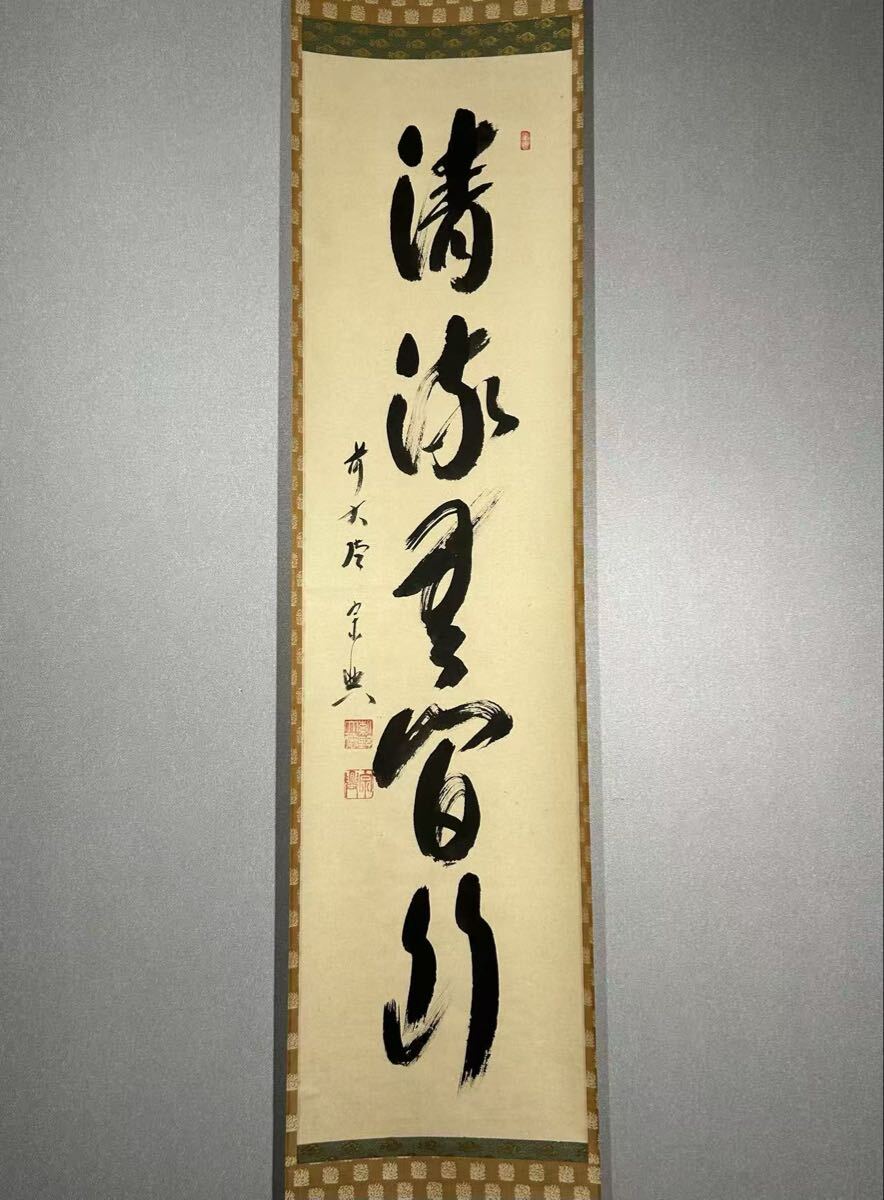 清流無間断
前大徳 宗典